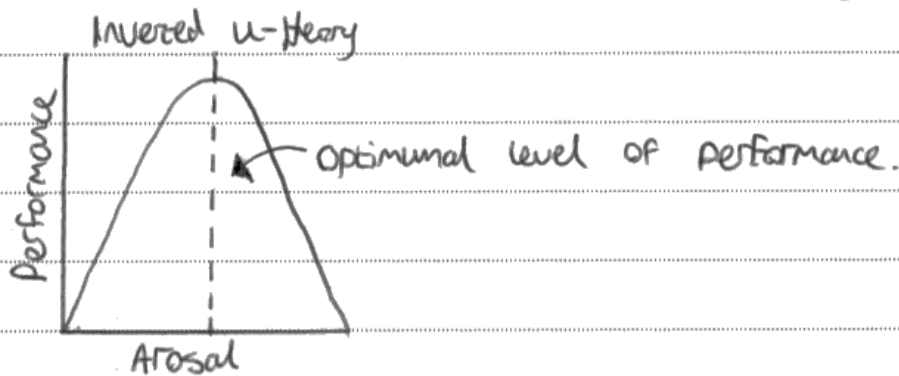 Invered u-theory
Performance
Optimumal level of performance.
Arosal